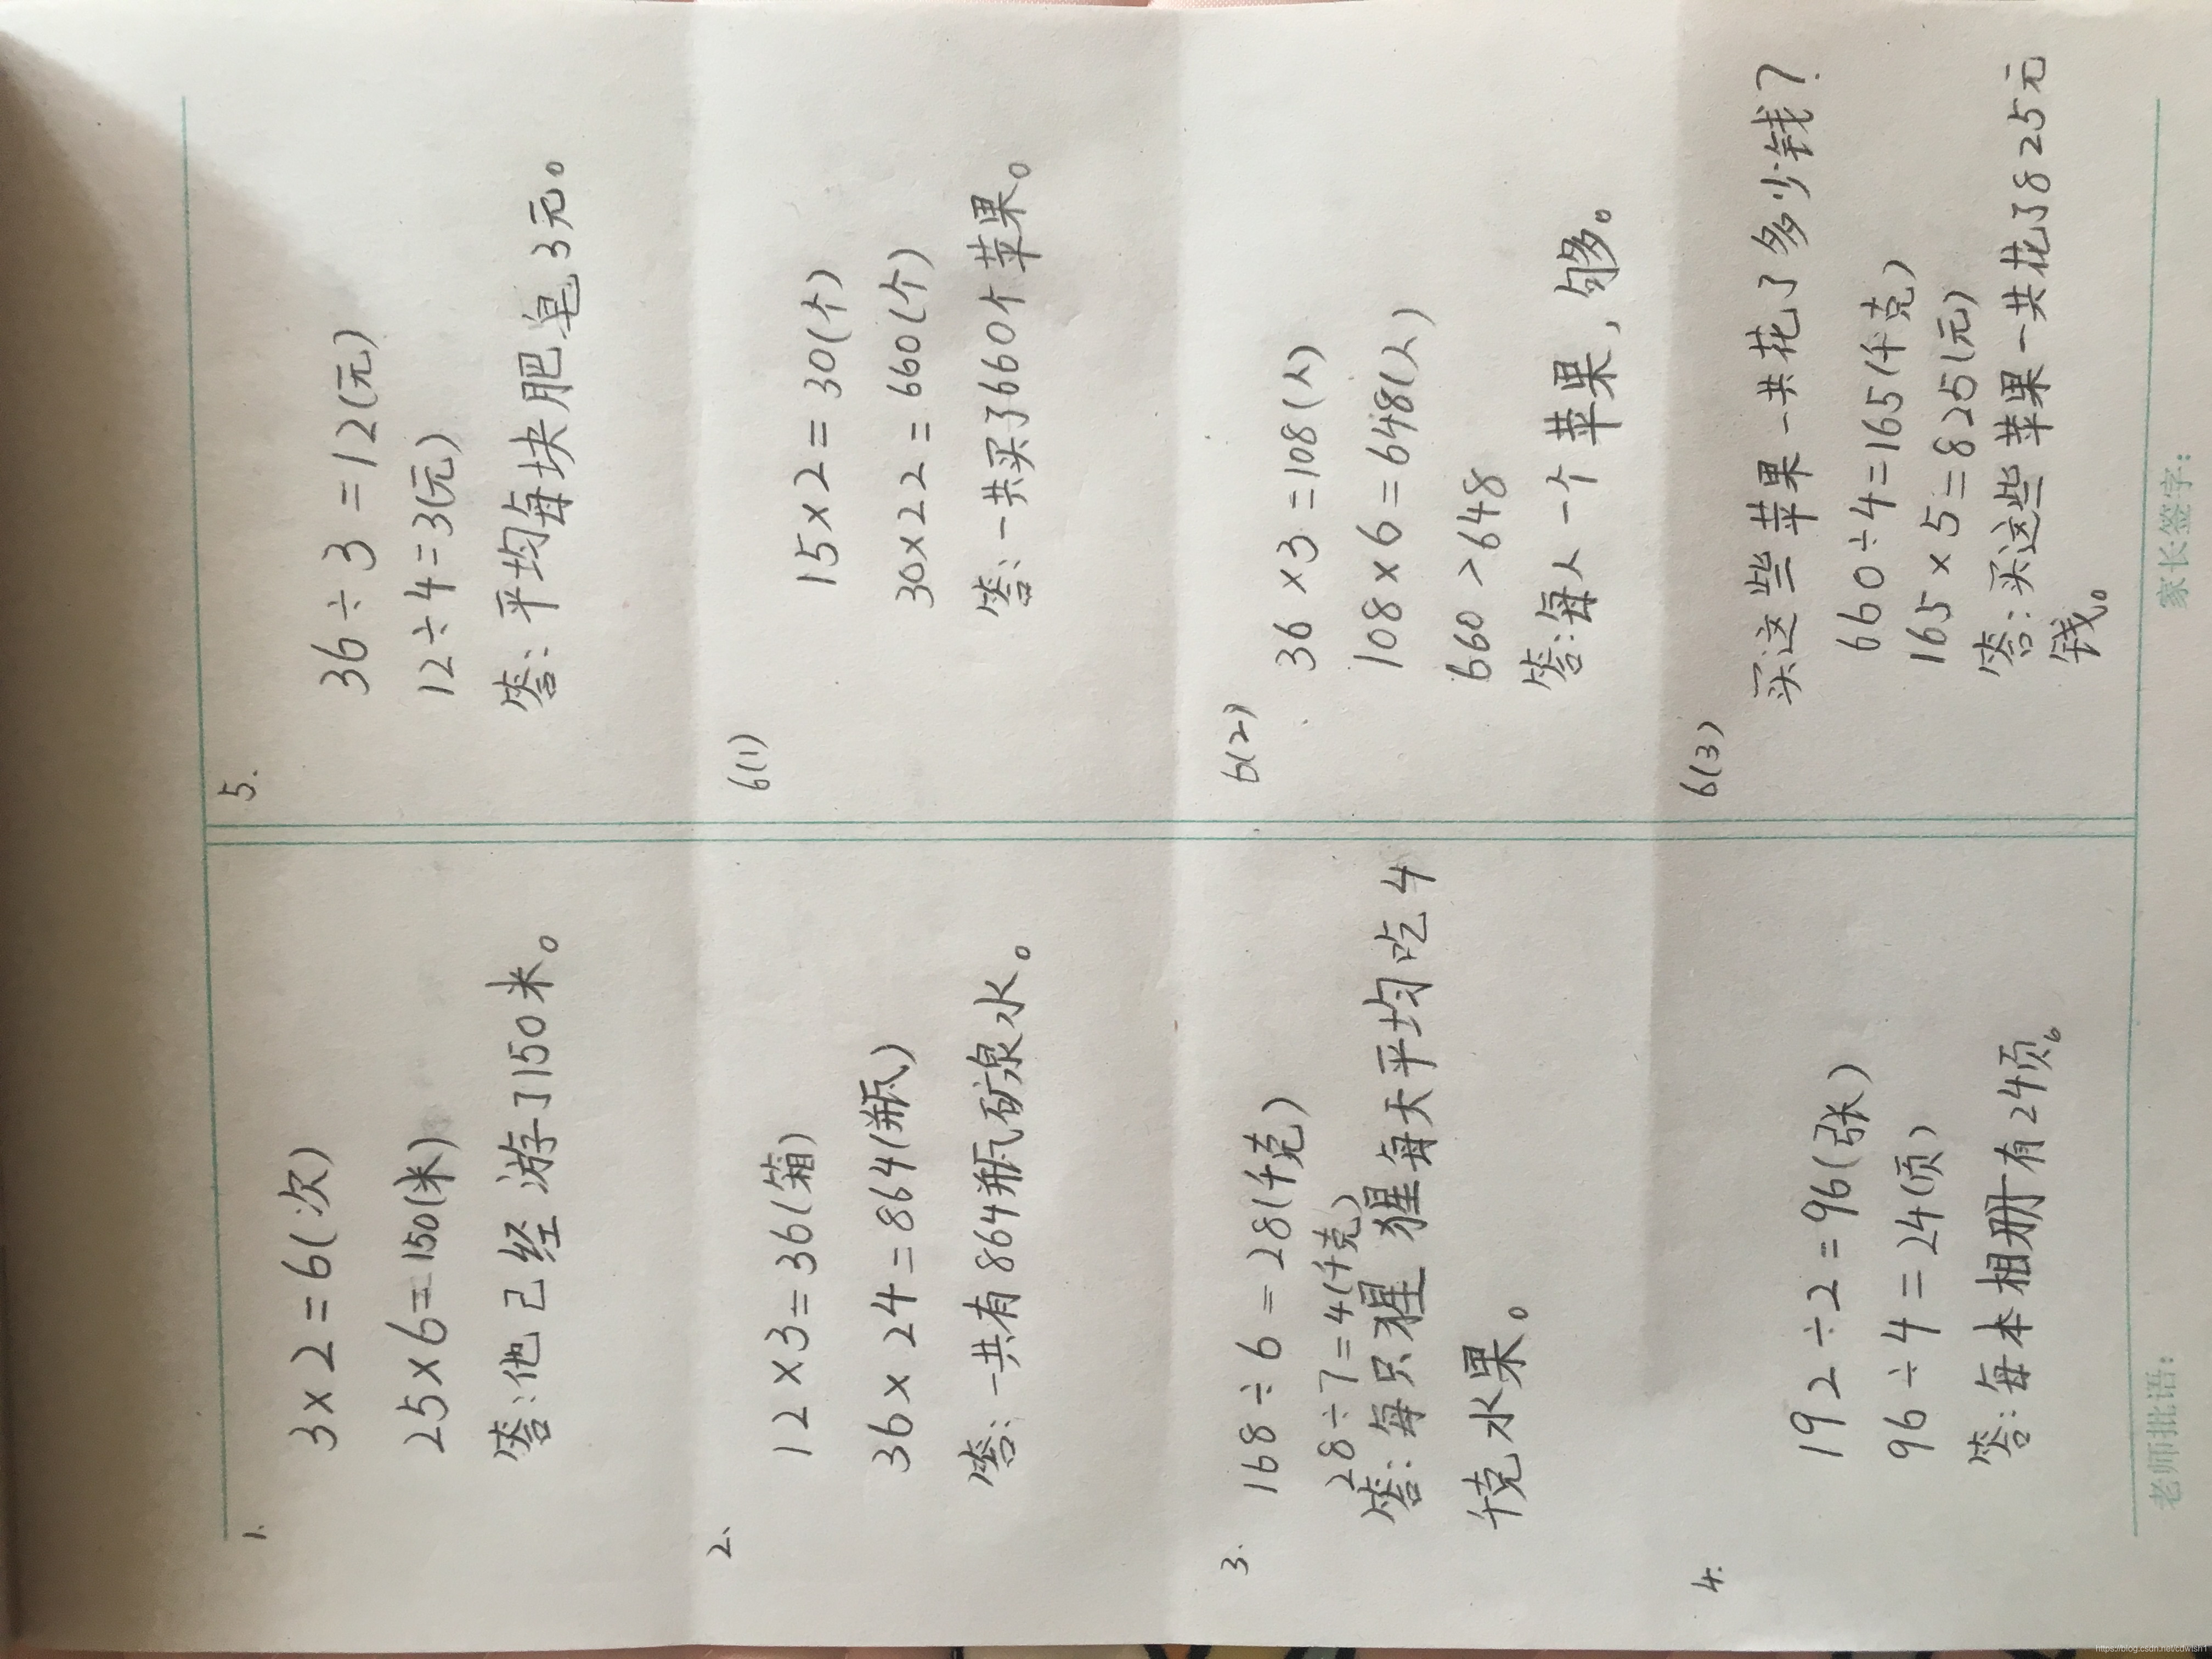 1.
3×2=6(次)
25×6=150(米)
答:他已经游了150米。
2.
12×3=36(箱)
36×24=864(瓶)
答:一共有864瓶矿泉水。
3.
168÷6=28(千克)
28÷7=4(千克)
答:每只猩猩每天平均吃4
千克水果。
4.
192÷2=96(张)
96÷4=24(页)
答:每本相册有24页。
5.
36÷3=12(元)
12÷4=3(元)
答:平均每块肥皂3元。
6(1)
15×2=30(个)
30×22=660(个)
答:一共买了660个苹果。
6(2)
36×3=108(人)
108×6=648(人)
660>648
答:每人一个苹果,够。
6(3)
买这些苹果一共花了多少钱?
660÷4=165(千克)
165×5=825(元)
答:买这些苹果一共花了825元
钱。
老师批语:
家长签字: